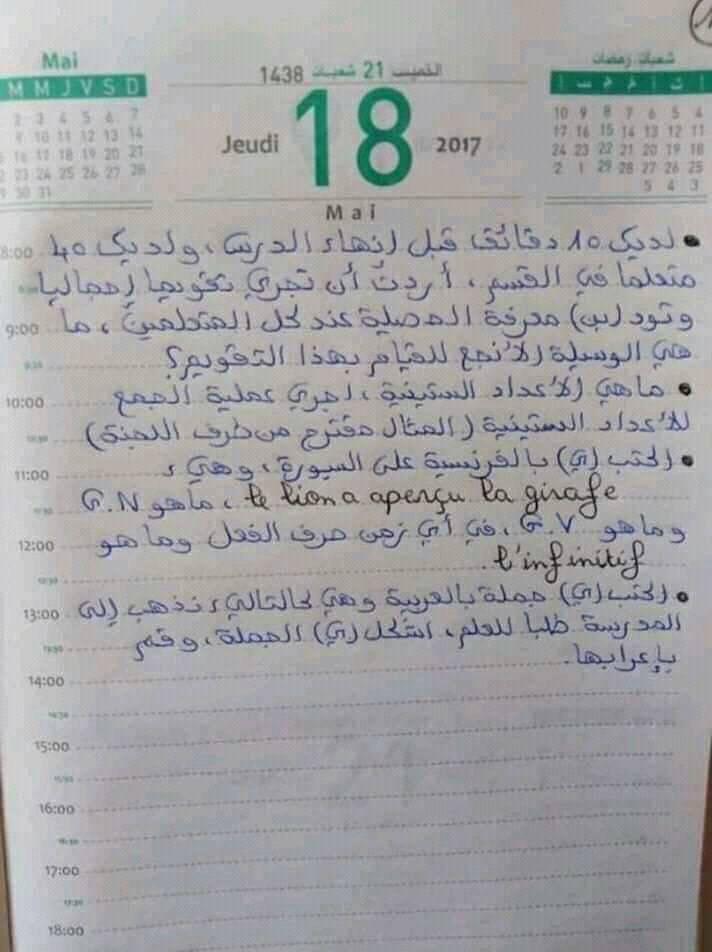 Mai
M M J V S D
2 3 4 5 6 7
9 10 11 12 13 14
16 17 18 19 20 21
23 24 25 26 27 28
30 31
الخميس 21 شعبان 1438
Jeudi 18 2017
Mai
شعبان، رمضان
10 9 8 7 6 5 4
17 16 15 14 13 12 11
24 23 22 21 20 19 18
2 1 29 28 27 26 25
5 4 3
8:00 • لديك 10 دقائق قبل إنهاء الدرس، ولديك 40
متعلما في القسم، أردتَ أن تجري تقويما إجماليا
9:00 وتود(ين) معرفة الحصيلة عند كل المتعلمين، ما
هي الوسيلة الأنجع للقيام بهذا التقويم؟
10:00 • ماهي الأعداد الستينية، اجري عملية الجمع
للأعداد الستينية (المثال مقترح من طرف اللجنة)
11:00 • اكتب(ي) بالفرنسية على السبورة، وهي:
le lion a aperçu la girafe، ماهو G.N
12:00 وما هو G.V، في أي زمن صرف الفعل وما هو
l'infinitif.
13:00 • اكتب(ي) جملة بالعربية وهي كالتالي: نذهب إلى
المدرسة طلباً للعلم، اشكل(ي) الجملة، وقم
بإعرابها.
14:00
15:00
16:00
17:00
18:00